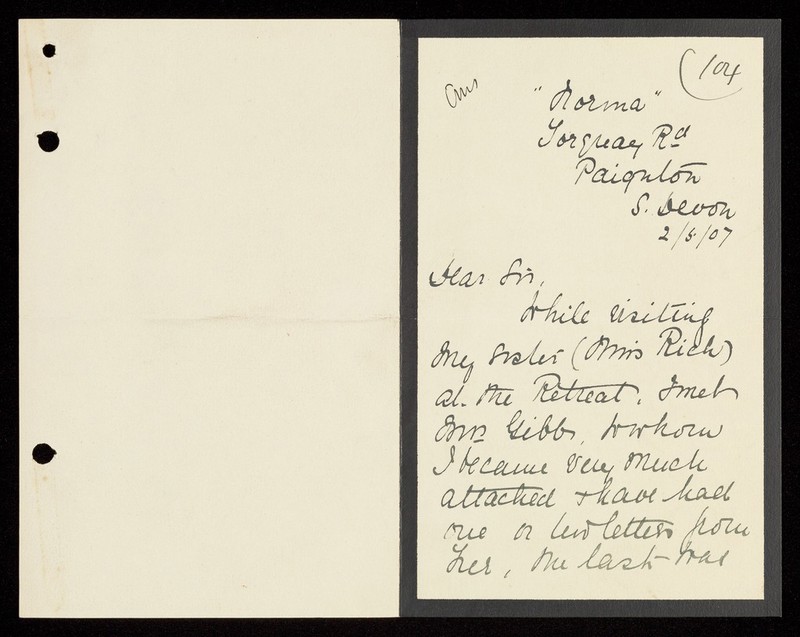 (104
Ans
"Norma"
Torquay Rd
Paignton
S. Devon
2/5/07
Dear Sir,
While visiting
my sister (Miss Rich)
at the Retreat, I met
Mrs Gibbs, to whom
I became very much
attached & have had
one or two letters from
her, the last was